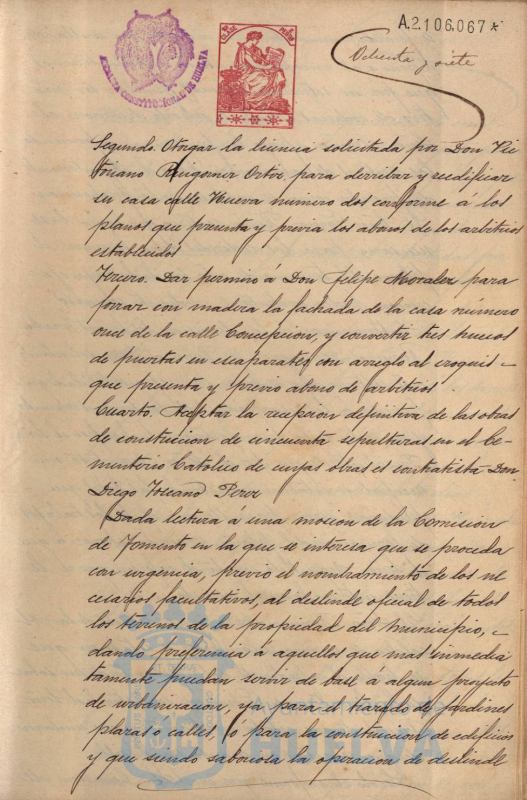 A.2106.067*
Ochenta y siete
ALCALDIA CONSTITUCIONAL DE HUELVA
Segundo. Otorgar la licencia solicitada por Don Vic
toriano Ortiz, para derribar y reedificar
su casa calle Nueva número dos conforme a los
planos que presenta y previa los abonos de los arbitrios
establecidos
Tercero. Dar permiso á Don Felipe Morales para
forrar con madera la fachada de la casa número
once de la calle Concepcion, y convertir tres huecos
de puertas en escaparates con arreglo al croquis -
que presenta y previo abono de arbitrios.
Cuarto. Aceptar la recepcion definitiva de las obras
de construccion de cincuenta sepulturas en el Ce-
menterio Catolico de cuyas obras es contratista Don
Diego Toscano Perez
Dada lectura á una mocion de la Comision
de Fomento en la que se interesa que se proceda
con urgencia, previo el nombramiento de los ne
cesarios facultativos, al deslinde oficial de todos
los terrenos de la propiedad del Municipio, -
dando preferencia á aquellos que mas inmedia
tamente puedan servir de base á algun proyecto
de urbanizacion, ya para el trazado de jardines
plazas o calles, ó para la construccion de edificios
y que siendo la operacion de deslinde
HUELVA